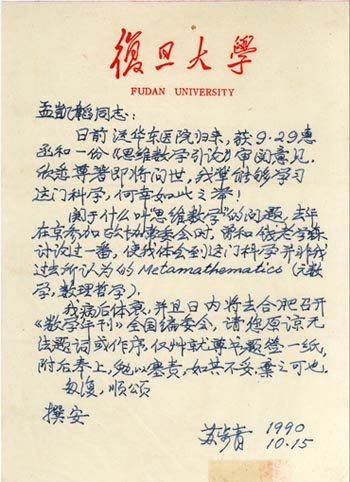 復旦大學
FUDAN UNIVERSITY
孟凱韜同志:
日前從华东医院归来,获9.29惠
函和一份《思维数学引论》审阅意见,
欣悉尊著即将问世,我学能够学习
这门科学,何幸如此之举!
关于什么叶思维数学"的问题,去年
在京参加政协常委会时,曾和钱老学森
讨论过一番,使我体会到这门科学并非我
过去所认为的Metamathematics(元数
学,数理哲学)。
我病后体衰,并且日内将去合肥召开
《数学年刊》全国编委会,请您原谅无
法题词或作序,仅就尊书题签一纸,
附后奉上,勉以塞责,如其不妥,弃之可也。
匆復,顺颂
撰安
苏步青 1990
10.15